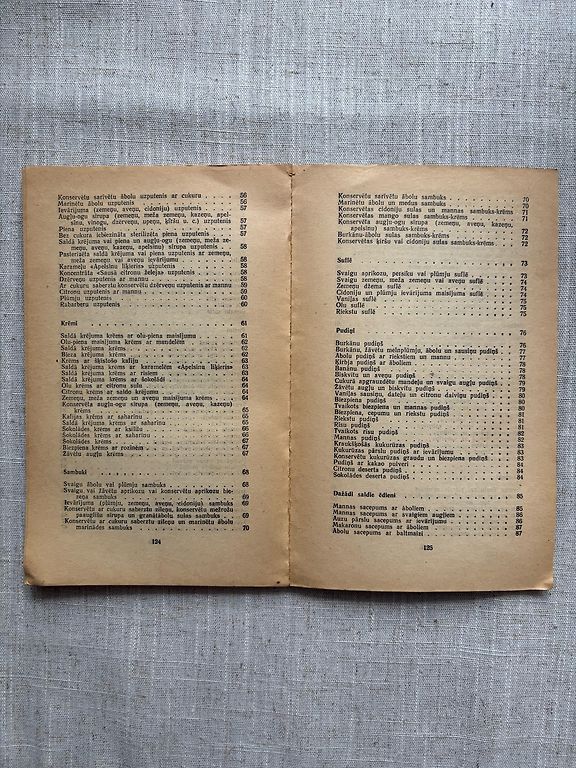 Konservētu sarīvētu ābolu uzputenis ar cukuru . . . . . 56
Marinētu ābolu uzputenis . . . . . 56
Ievārījuma (zemeņu, aveņu, cidoniju) uzputenis . . . . . 57
Augļu-ogu sīrupa (zemeņu, meža zemeņu, kazeņu, apel-
sīnu, vīnogu, dzērveņu, upeņu, ķiršu u. c.) uzputenis . . 57
Piena uzputenis . . . . . 57
Bez cukura iebiezināta sterilizēta piena uzputenis . . . 57
Saldā krējuma vai piena un augļu-ogu (zemeņu, meža ze-
meņu, aveņu, kazeņu, apelsīnu) sīrupa uzputenis . . . 58
Pasterizēta saldā krējuma vai piena uzputenis ar zemeņu,
meža zemeņu vai aveņu ievārījumu . . . . . 58
Karameļu «Apelsīnu liķieris» uzputenis . . . . . 58
Koncentrāta «Sausā citronu želeja» uzputenis . . . . . 58
Dzērveņu uzputenis ar mannu . . . . . 58
Ar cukuru saberztu konservētu dzērveņu uzputenis ar mannu 59
Citronu uzputenis ar mannu . . . . . 59
Plūmju uzputenis . . . . . 60
Rabarberu uzputenis . . . . . 60
Krēmi . . . . . 61
Saldā krējuma krēms ar olu-piena maisījumu . . . . . 61
Olu-piena maisījuma krēms ar mandelēm . . . . . 62
Saldā krējuma krēms . . . . . 62
Bieza krējuma krēms . . . . . 62
Krēms ar šķīstošo kafiju . . . . . 63
Saldā krējuma krēms ar karamelēm «Apelsīnu liķieris» . . 63
Saldā krējuma krēms ar rīsiem . . . . . 63
Saldā krējuma krēms ar šokolādi . . . . . 64
Olu krēms ar citronu sulu . . . . . 64
Citronu krēms ar saldo krējumu . . . . . 64
Zemeņu, meža zemeņu vai aveņu maisījuma krēms . . . 64
Konservēta augļu-ogu sīrupa (zemeņu, aveņu, kazeņu)
krēms . . . . . 65
Kafijas krēms ar saharīnu . . . . . 65
Saldā krējuma krēms ar saharīnu . . . . . 65
Šokolādes krēms ar ksilītu . . . . . 66
Šokolādes krēms ar saharīnu . . . . . 66
Šokolādes krēms . . . . . 67
Biezpiena krēms ar rozīnēm . . . . . 67
Žāvētu augļu krēms . . . . . 67
Sambuki . . . . . 68
Svaigu ābolu vai plūmju sambuks . . . . . 68
Svaigu vai žāvētu aprikozu vai konservētu aprikozu bie-
zeņa sambuks . . . . . 69
Ievārījuma (plūmju, zemeņu, aveņu, cidoniju) sambuks . . 69
Konservētu ar cukuru saberztu zileņu, konservētu mežrožu
pašugļišu sīrupa un granātābolu sulas sambuks . . . 69
Konservētu ar cukuru saberztu zileņu un marinētu ābolu
marinādes sambuks . . . . . 70
124
Konservētu sarīvētu ābolu sambuks . . . . . 70
Marinētu ābolu un medus sambuks . . . . . 70
Konservētas cidoniju sulas un mannas sambuks-krēms . . 71
Konservētas mango sulas sambuks-krēms . . . . . 71
Konservēta augļu-ogu sīrupa (zemeņu, aveņu, kazeņu,
apelsīnu) sambuks-krēms . . . . . 72
Burkānu-ābolu sambuks-krēms . . . . . 72
Konservētas ķiršu vai cidoniju sulas sambuks-krēms . . . 72
Suflē . . . . . 73
Svaigu aprikozu, persiku vai plūmju suflē . . . . . 73
Svaigu zemeņu, meža zemeņu vai aveņu suflē . . . . . 74
Zemeņu džema suflē . . . . . 74
Cidoniju un plūmju ievārījuma maisījuma suflē . . . . . 74
Vaniļas suflē . . . . . 75
Olu suflē . . . . . 75
Riekstu suflē . . . . . 75
Pudiņi . . . . . 76
Burkānu pudiņš . . . . . 76
Burkānu, žāvētu melnplūmju, ābolu un sausiņu pudiņš . . 77
Ābolu pudiņš ar riekstiem un mannu . . . . . 77
Ķirbja pudiņš ar āboliem . . . . . 78
Banānu pudiņš . . . . . 78
Biskvītu un aveņu pudiņš . . . . . 78
Cukurā apgrauzdētu mandeļu un svaigu augļu pudiņš . . 79
Žāvētu augļu un biskvītu pudiņš . . . . . 79
Vaniļas sausiņu, dateļu un citronu daiviņu pudiņš . . . 80
Biezpiena pudiņš . . . . . 80
Tvaikots biezpiena un mannas pudiņš . . . . . 80
Biezpiena, cepumu un riekstu pudiņš . . . . . 81
Riekstu pudiņš . . . . . 81
Rīsu pudiņš . . . . . 81
Tvaikots rīsu pudiņš . . . . . 82
Mannas pudiņš . . . . . 82
Kraukšķošās kukurūzas pudiņš . . . . . 82
Kukurūzas pārslu pudiņš ar ievārījumu . . . . . 83
Konservētu kukurūzas graudu un biezpiena pudiņš . . . 83
Pudiņš ar kakao pulveri . . . . . 84
Citronu deserta pudiņš . . . . . 84
Šokolādes deserta pudiņš . . . . . 84
Dažādi saldie ēdieni . . . . . 85
Mannas sacepums ar āboliem . . . . . 85
Mannas sacepums ar svaigiem augļiem . . . . . 86
Auzu pārslu sacepums ar ievārījumu . . . . . 86
Makaronu sacepums ar āboliem . . . . . 87
Ābolu sacepums ar baltmaizi . . . . . 87
125